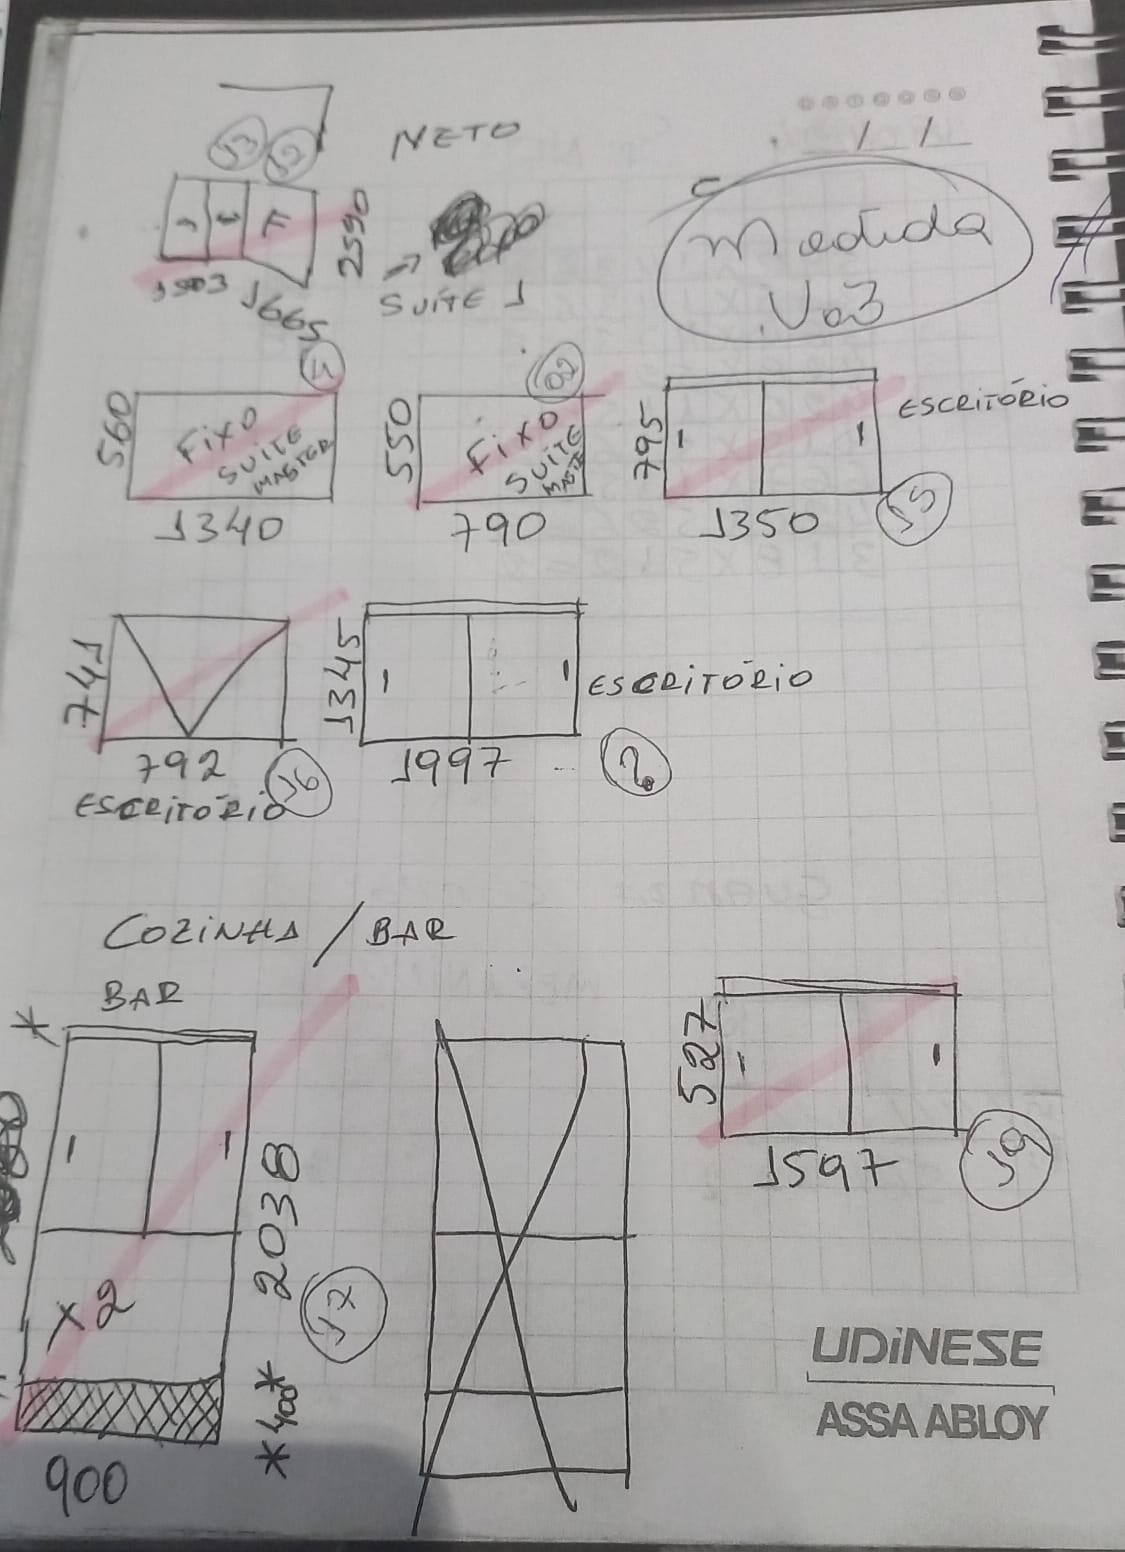 NETO
2590
1503
1665
SUÍTE 1
Medida
Vo3
560
FIXO
SUITE
MASTER
1340
550
FIXO
SUITE
790
795
1350
ESCRITÓRIO
15
741
792
16
ESCRITÓRIO
1345
1997
ESCRITÓRIO
COZINHA / BAR
BAR
2038
X2
*400*
17
900
527
1597
19
UDINESE
ASSA ABLOY